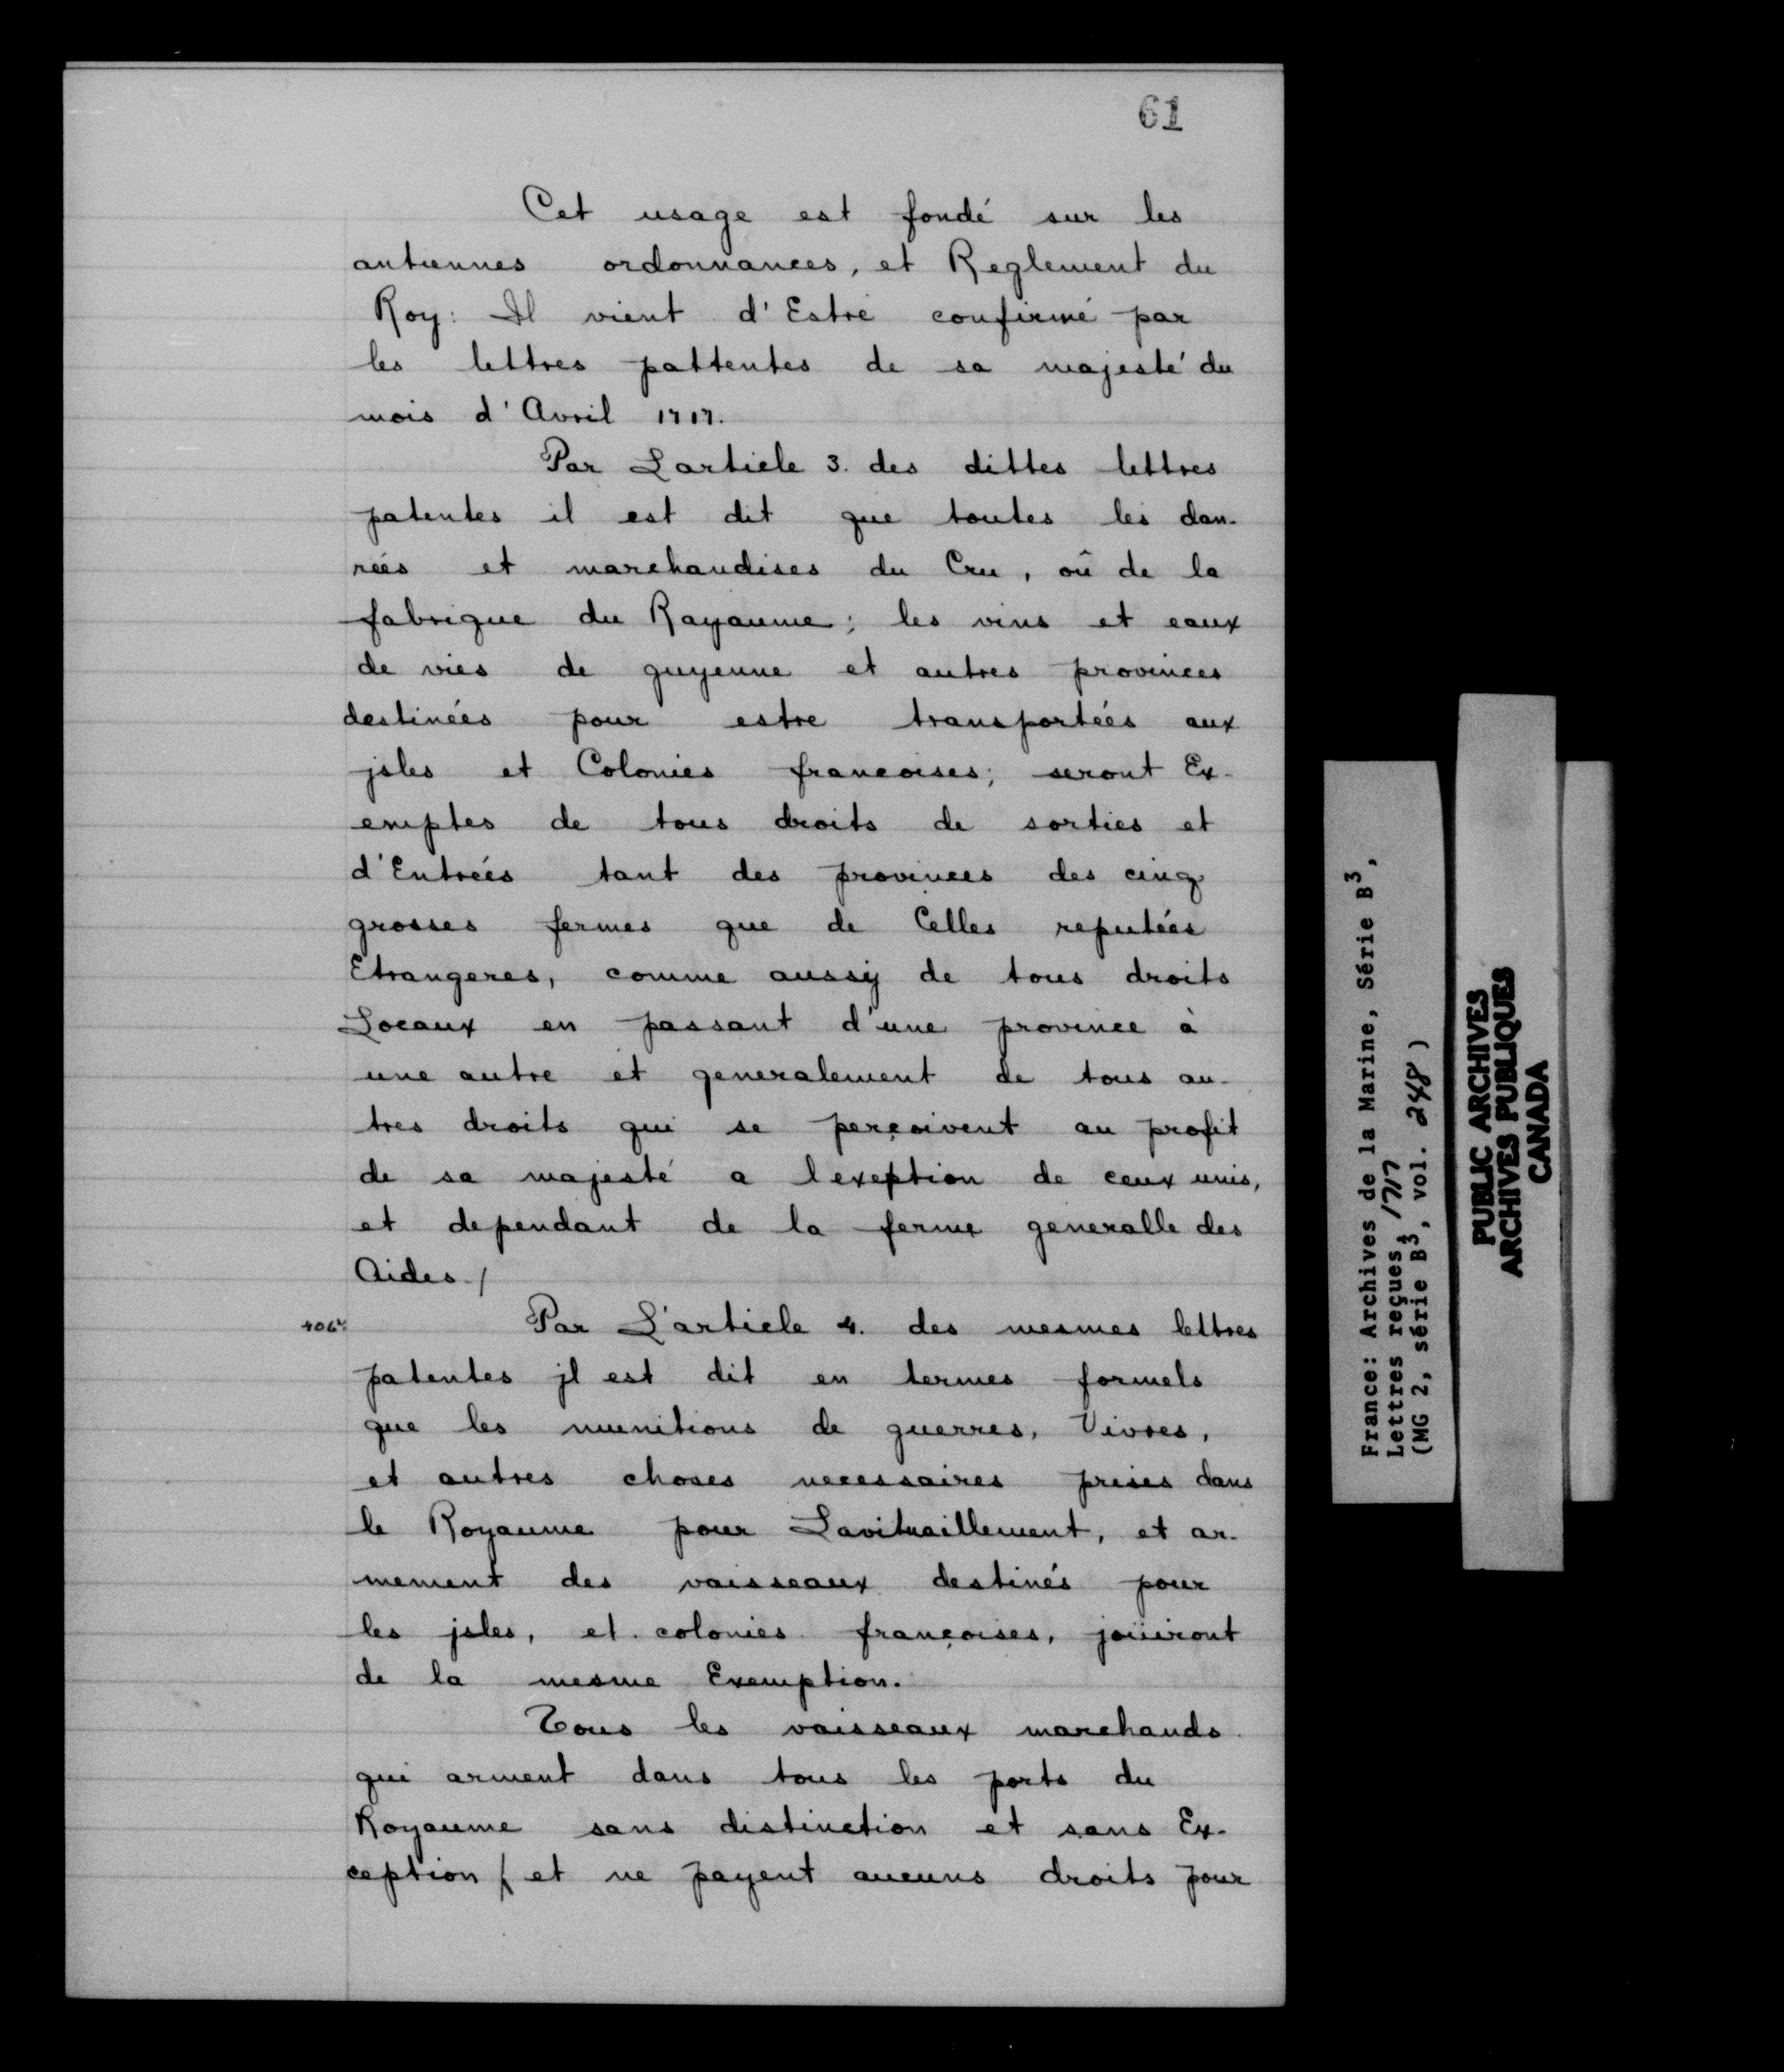 61
Cet usage est fondé sur les
antiennes ordonnances, et Reglement du
Roy: Il vient d'Estre confirmé par
les lettres pattentes de sa majesté du
mois d'Avril 1717.
Par Lartiele 3. des dittes lettres
patentes il est dit que toutes les dan-
rées et marchandises du Cru, oû de la
fabrique du Rayaume; les vins et eaux
de vies de guyenne et autres provinces
destinées pour estre transportées aux
jsles et Colonies francoises; seront Ex-
emptes de tous droits de sorties et
d'Entrées tant des provinces des cinq
grosses fermes que de Celles reputées
Etrangeres, comme aussÿ de tous droits
Locaux en passant d'une province à
une autre et generalement de tous au-
tres droits qui se perçoivent au profit
de sa majesté a lexeption de ceux unis,
et dependant de la ferme generalle des
Aides./
406v.
Par L'article 4. des mesmes lettres
patentes jl est dit en termes formels
que les munitions de guerres, Vivres,
et autres choses necessaires prises dans
le Royaume pour Lavituaillement, et ar-
mement des vaisseaux destinés pour
les jsles, et colonies françoises, joüiront
de la mesme Exemption.
Tous les vaisseaux marchands
qui arment dans tous les ports du
Royaume sans distinction et sans Ex-
ception / et ne payent aucuns droits pour
France: Archives de la Marine, Série B3,
Lettres reçues, 1717
(MG 2, série B3, vol. 248)
PUBLIC ARCHIVES
ARCHIVES PUBLIQUES
CANADA